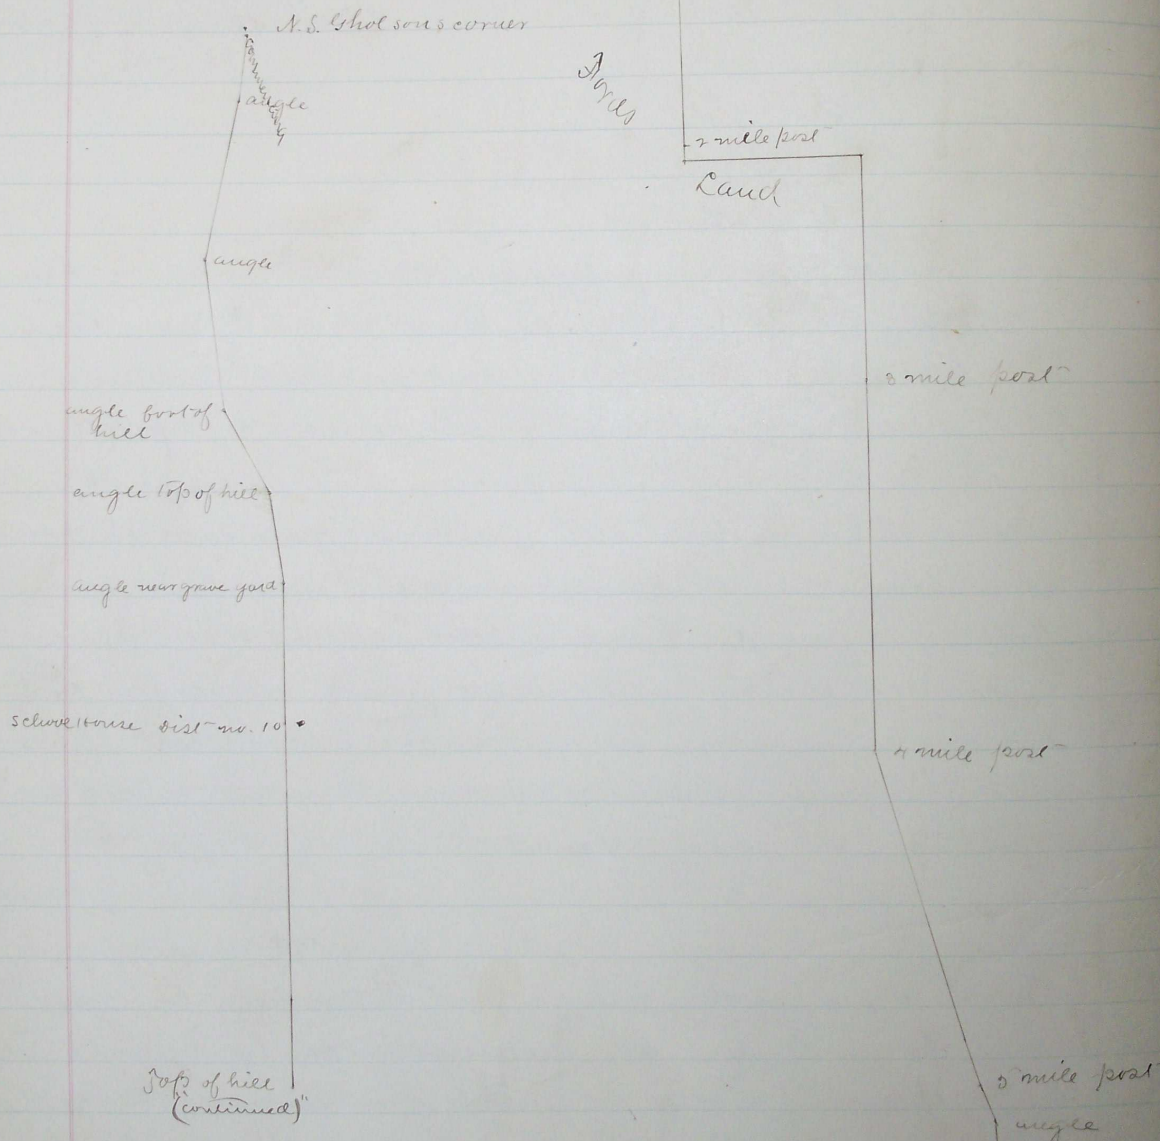 N.S. Gholsons corner
angle
angle
angle foot of
hill
angle Top of hill
angle near grave yard
School House Dist no. 10
Top of hill
"(continued)"
2 mile post
Land
3 mile post
4 mile post
5 mile post
angle